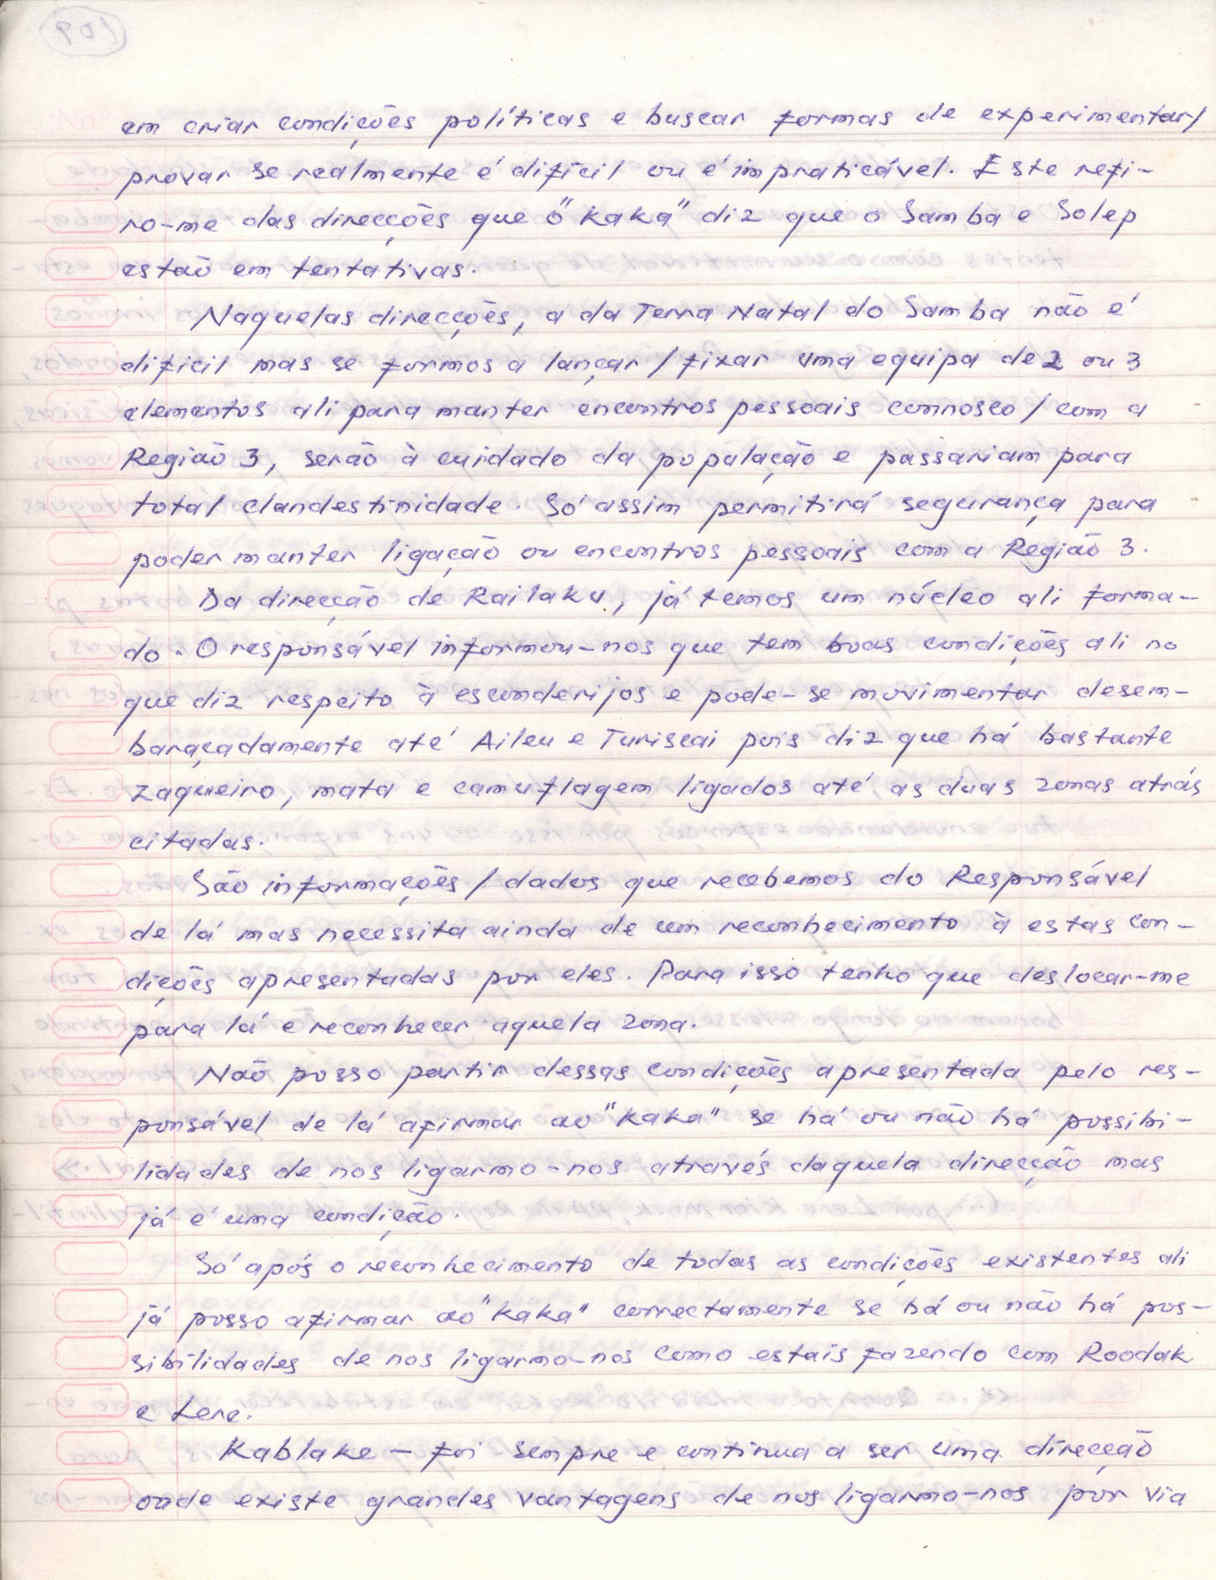 em criar condições políticas e buscar formas de experimentar/
provar se realmente é difícil ou é impraticável. Este refi-
ro-me das direcções que o "Kaka" diz que o Samba e Solep
estaõ em tentativas.
Naquelas direcções, a da Terra Natal do Samba não é
dificil mas se formos a lançar/fixar uma equipa de 2 ou 3
elementos ali para manter encontros pessoais connosco/com a
Região 3, serão à cuidado da população e passariam para
total clandestinidade. Só assim permitirá segurança para
poder manter ligação ou encontros pessoais com a Região 3.
Da direcção de Railaku, já temos um núcleo ali forma-
do. O responsável informou-nos que tem boas condições ali no
que diz respeito à esconderijos e pode-se movimentar desem-
baraçadamente até Aileu e Turiscai pois diz que há bastante
zaqueiro, mata e camuflagem ligados até as duas zonas atrás
citadas.
São informações/dados que recebemos do Responsável
de lá mas necessita ainda de um reconhecimento à estas con-
dições apresentadas por eles. Para isso tenho que deslocar-me
para lá e reconhecer aquela zona.
Naõ posso partir dessas condições apresentada pelo res-
ponsável de lá afirmar ao "Kaka" se há ou não há possibi-
lidades de nos ligarmo-nos através daquela direcção mas
já é uma condição.
Só após o reconhecimento de todas as condições existentes ali
já posso afirmar ao "Kaka" correctamente se há ou não há pos-
sibilidades de nos ligarmo-nos como estais fazendo com Roodak
e Lere.
Kablake - foi sempre e continua a ser uma direcção
onde existe grandes vantagens de nos ligarmo-nos por via